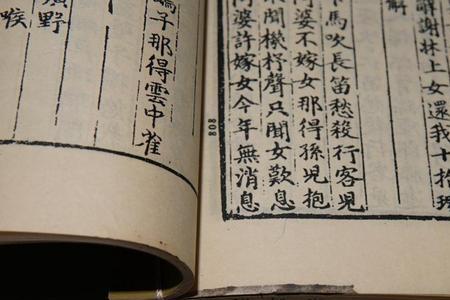 謝林上女還我十
解
馬吹長笛愁殺行客兒
婆不嫁女那得孫兒抱
聞機杼聲只聞女歎息
阿婆許嫁女今年無消息
808
鷂子那得雲中雀
野
喉